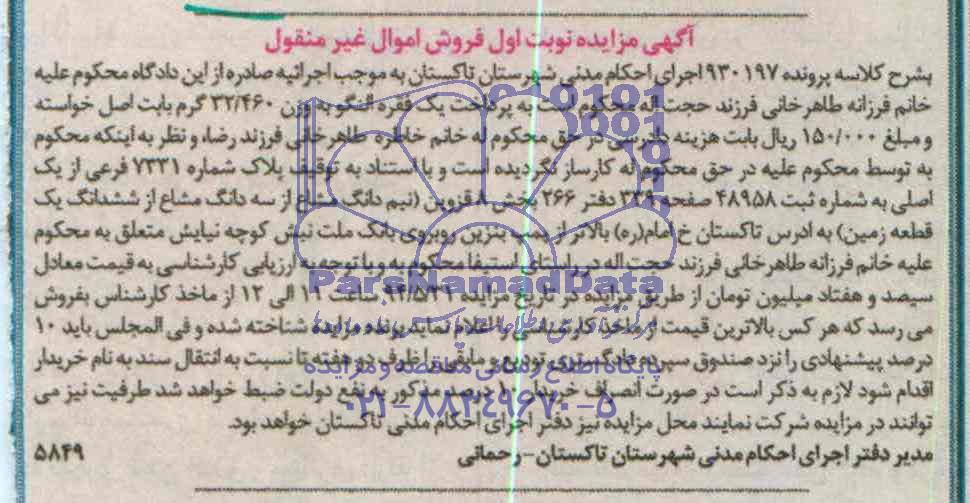 آگهی مزایده نوبت اول فروش اموال غیر منقول
بشرح کلاسه پرونده ۹۳۰۱۹۷ اجرای احکام مدنی شهرستان تاکستان به موجب اجرائیه صادره از این دادگاه محکوم علیه
خانم فرزانه طاهرخانی فرزند حجت اله محکوم است به پرداخت یک فقره النگو به وزن ۳۲/۴۶۰ گرم بابت اصل خواسته
و مبلغ ۱۵۰/۰۰۰ ریال بابت هزینه دادرسی در حق محکوم له خانم خاطره طاهرخانی فرزند رضا، و نظر به اینکه محکوم
به توسط محکوم علیه در حق محکوم له کارساز نگردیده است و با استناد به توقیف پلاک شماره ۷۳۳۱ فرعی از یک
اصلی به شماره ثبت ۴۸۹۵۸ صفحه ۳۳۹ دفتر ۲۶۶ بخش ۸ قزوین (نیم دانگ مشاع از سه دانگ مشاع از ششدانگ یک
قطعه زمین) به ادرس تاکستان خ امام(ره) بالاتر از پمپ بنزین روبروی بانک ملت نبش کوچه نیایش متعلق به محکوم
علیه خانم فرزانه طاهرخانی فرزند حجت اله در راستای استیفا محکوم به و با توجه به ارزیابی کارشناسی به قیمت معادل
سیصد و هفتاد میلیون تومان از طریق مزایده در تاریخ مزایده ساعت ۱۱ الی ۱۲ از ماخذ کارشناس بفروش
می رسد که هر کس بالاترین قیمت از ماخذ کارشناسی را اعلام نماید برنده مزایده شناخته شده و فی المجلس باید ۱۰
درصد پیشنهادی را نزد صندوق سپرده دادگستری تودیع و مابقی را ظرف دو هفته تا نسبت به انتقال سند به نام خریدار
اقدام شود لازم به ذکر است در صورت انصراف خریدار ۱۰ درصد مذکور به نفع دولت ضبط خواهد شد ظرفیت نیز می
توانند در مزایده شرکت نمایند محل مزایده نیز دفتر اجرای احکام مدنی تاکستان خواهد بود.
مدیر دفتر اجرای احکام مدنی شهرستان تاکستان-رحمانی ۵۸۴۹
ParsNamadData
پایگاه اطلاع رسانی مناقصه و مزایده
۰۲۱-۸۸۳۴۹۶۷۰-۵